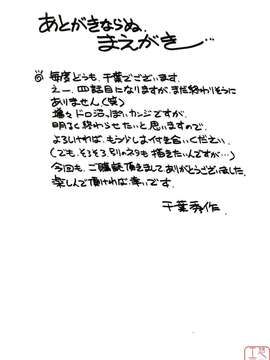 あとがきならぬ、
まえがき…
◎毎度どうも、千葉でございます。
えー、四話目になりますが、まだ終わりそうに
ありません(笑)
増々ドロ沼っぽいカンジですが、
明るく終わらせたいと思いますので、
よろしければ、もう少しお付き合いください。
(でも、そろそろ別のネタも描きたいんですが…)
今回も、ご購読頂きましてありがとうございました。
楽しんで頂ければ幸いです。
千葉秀作.